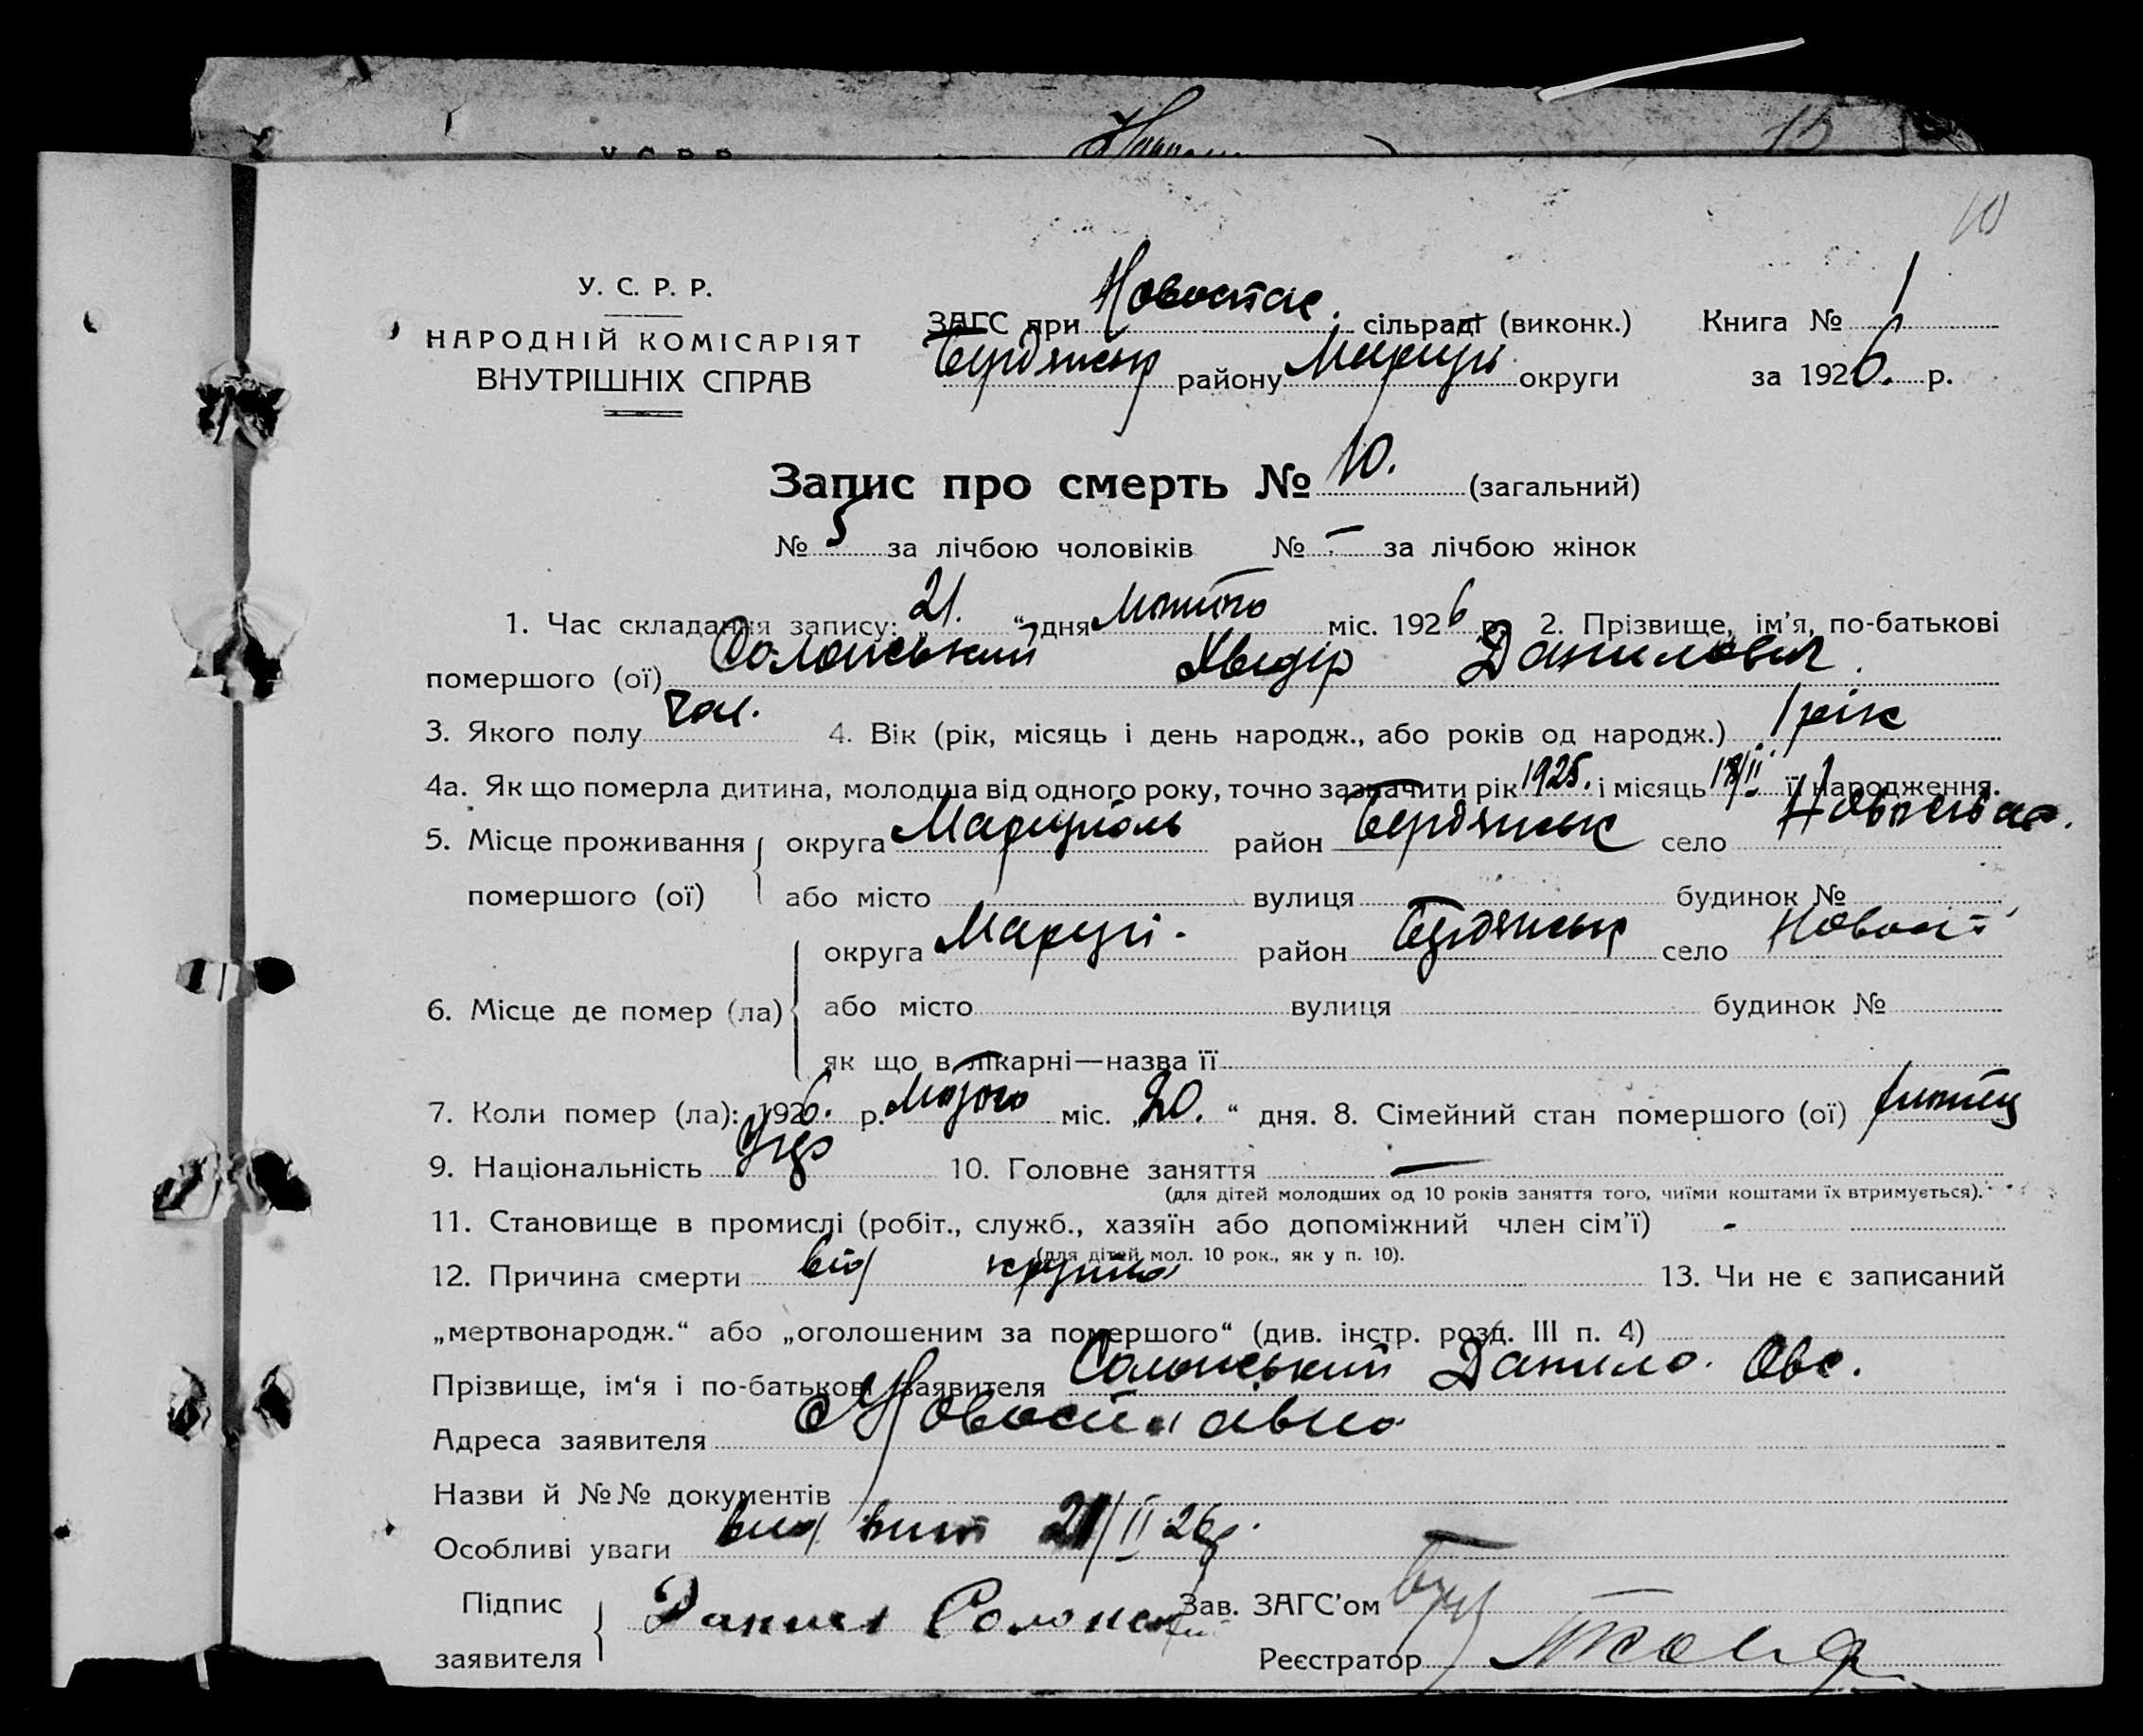 10
У. С. Р. Р.
НАРОДНІЙ КОМІСАРІЯТ
ВНУТРІШНІХ СПРАВ
ЗАГС при Новоспас. сільраді (виконк.) Книга № 1
Бердянськ району Маріуп. округи за 1926. р.
Запис про смерть № 10. (загальний)
№ 5 за лічбою чоловіків № – за лічбою жінок
1. Час складання запису: 21. " дня Лютого міс. 1926 р. 2. Прізвище, ім'я, по-батькові
помершого (ої) Солонський Хведір Данилович.
3. Якого полу чол. 4. Вік (рік, місяць і день народж., або років од народж.) 1 рік
4а. Як що померла дитина, молодша від одного року, точно зазначити рік 1925. і місяць /II її народження.
5. Місце проживання округа Маріуполь район Бердянськ село Новоспас.
помершого (ої) або місто вулиця будинок №
округа Маріуп. район Бердянськ село
6. Місце де помер (ла) або місто вулиця будинок №
як що в лікарні—назва її
7. Коли помер (ла): 1926. р. Лютого міс. „20. " дня. 8. Сімейний стан помершого (ої)
9. Національність Укр 10. Головне заняття —
(для дітей молодших од 10 років заняття того, чиїми коштами їх втримується).
11. Становище в промислі (робіт., служб., хазяїн або допоміжний член сім'ї) -
(для дітей мол. 10 рок., як у п. 10).
12. Причина смерти від крупа 13. Чи не є записаний
„мертвонародж." або „оголошеним за помершого" (див. інстр. розд. III п. 4)
Прізвище, ім'я і по-батькові заявителя Солонський Данило. Овс.
Адреса заявителя с Новоспасівка
Назви й №№ документів
Особливі уваги вид вип 21/II 26р.
Підпис Данил Солонский Зав. ЗАГС'ом
заявителя Реєстратор